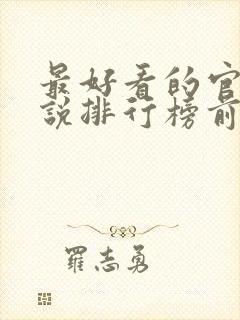 最好看的官
說排行榜前
羅志勇